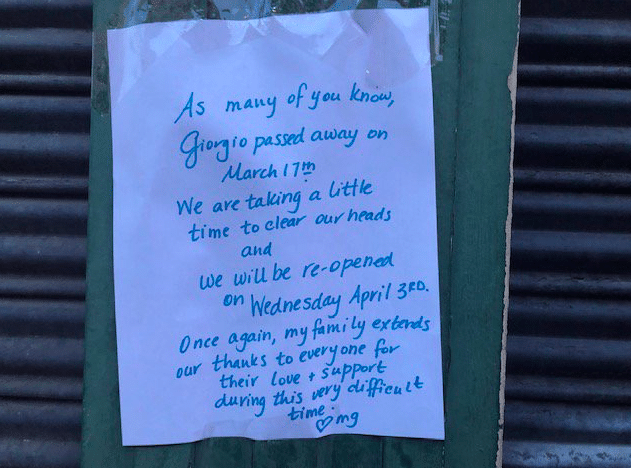 As many of you know,
Giorgio passed away on
March 17th
We are taking a little
time to clear our heads
and
we will be re-opened
on Wednesday April 3RD.
Once again, my family extends
our thanks to everyone for
their love + support
during this very difficult
time.
♡mg